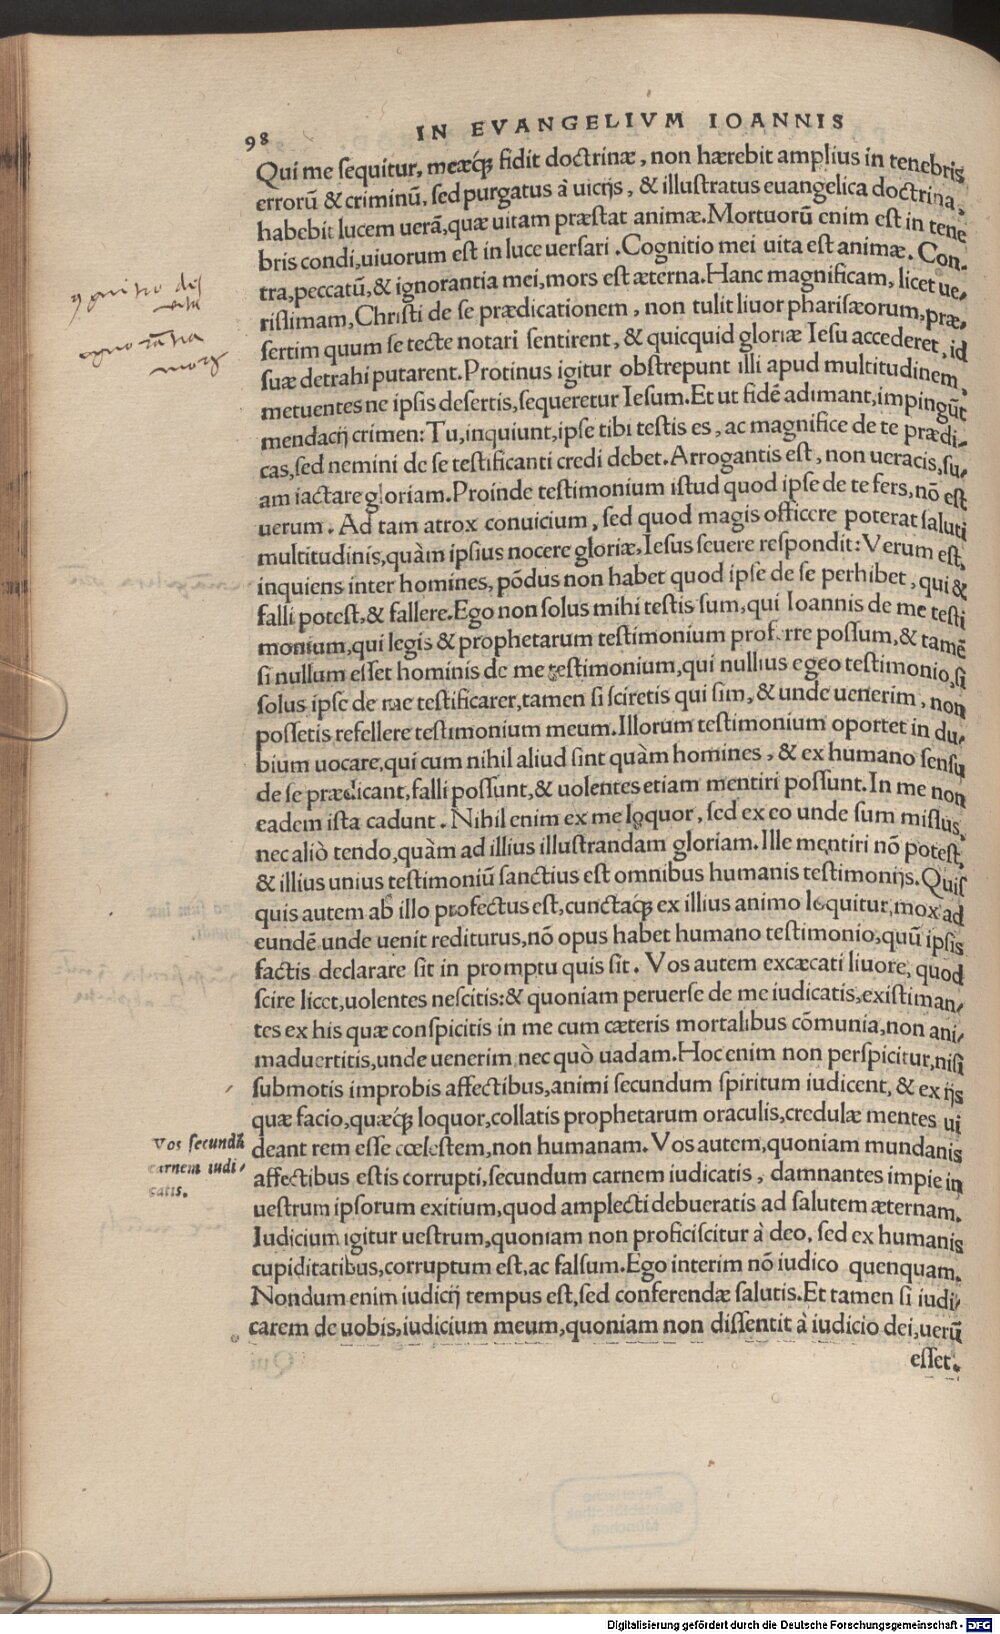 98
IN EVANGELIVM IOANNIS
Qui me sequitur, meæq́ꝫ fidit doctrinæ, non hærebit amplius in tenebris
errorũ & criminũ, sed purgatus à uicijs, & illustratus euangelica doctrina,
habebit lucem uerã, quæ uitam præstat animæ. Mortuorũ enim est in tene
bris condi, uiuorum est in luce uersari. Cognitio mei uita est animæ. Con-
tra, peccatũ, & ignorantia mei, mors est æterna. Hanc magnificam, licet ue-
rissimam, Christi de se prædicationem, non tulit liuor pharisæorum, præ-
sertim quum se tecte notari sentirent, & quicquid gloriæ Iesu accederet, id
suæ detrahi putarent. Protinus igitur obstrepunt illi apud multitudinem,
metuentes ne ipsis desertis, sequeretur Iesum. Et ut fidẽ adimant, impingũt
mendacij crimen: Tu, inquiunt, ipse tibi testis es, ac magnifice de te prædi-
cas, sed nemini de se testificanti credi debet. Arrogantis est, non ueracis, su-
am iactare gloriam. Proinde testimonium istud quod ipse de te fers, nõ est
uerum. Ad tam atrox conuicium, sed quod magis officere poterat saluti
multitudinis, quàm ipsius nocere gloriæ, Iesus seuere respondit: Verum est,
inquiens inter homines, põdus non habet quod ipse de se perhibet, qui &
falli potest, & fallere. Ego non solus mihi testis sum, qui Ioannis de me testi
monium, qui legis & prophetarum testimonium proferre possum, & tamẽ
si nullum esset hominis de me testimonium, qui nullius egeo testimonio, si
solus ipse de me testificarer, tamen si sciretis qui sim, & unde uenerim, non
possetis refellere testimonium meum. Illorum testimonium oportet in du-
bium uocare, qui cum nihil aliud sint quàm homines, & ex humano sensu
de se prædicant, falli possunt, & uolentes etiam mentiri possunt. In me non
eadem ista cadunt. Nihil enim ex me loquor, sed ex eo unde sum missus,
nec aliò tendo, quàm ad illius illustrandam gloriam. Ille mentiri nõ potest,
& illius unius testimoniũ sanctius est omnibus humanis testimonijs. Quis
quis autem ab illo profectus est, cunctaq́ꝫ ex illius animo loquitur, mox ad
eundẽ unde uenit rediturus, nõ opus habet humano testimonio, quũ ipsis
factis declarare sit in promptu quis sit. Vos autem excæcati liuore, quod
scire licet, uolentes nescitis: & quoniam peruerse de me iudicatis, existiman-
tes ex his quæ conspicitis in me cum cæteris mortalibus cõmunia, non ani-
maduertitis, unde uenerim nec quò uadam. Hoc enim non perspicitur, nisi
submotis improbis affectibus, animi secundum spiritum iudicent, & ex ijs
quæ facio, quæq́ꝫ loquor, collatis prophetarum oraculis, credulæ mentes ui
deant rem esse cœlestem, non humanam. Vos autem, quoniam mundanis
affectibus estis corrupti, secundum carnem iudicatis, damnantes impie in
uestrum ipsorum exitium, quod amplecti debueratis ad salutem æternam.
Iudicium igitur uestrum, quoniam non proficiscitur à deo, sed ex humanis
cupiditatibus, corruptum est, ac falsum. Ego interim nõ iudico quenquam.
Nondum enim iudicij tempus est, sed conferendæ salutis. Et tamen si iudi-
carem de uobis, iudicium meum, quoniam non dissentit à iudicio dei, uerũ
esset.
ignorãtia
mors
Vos secundũ
carnem iudi-
catis.
Digitalisierung gefördert durch die Deutsche Forschungsgemeinschaft - DFG